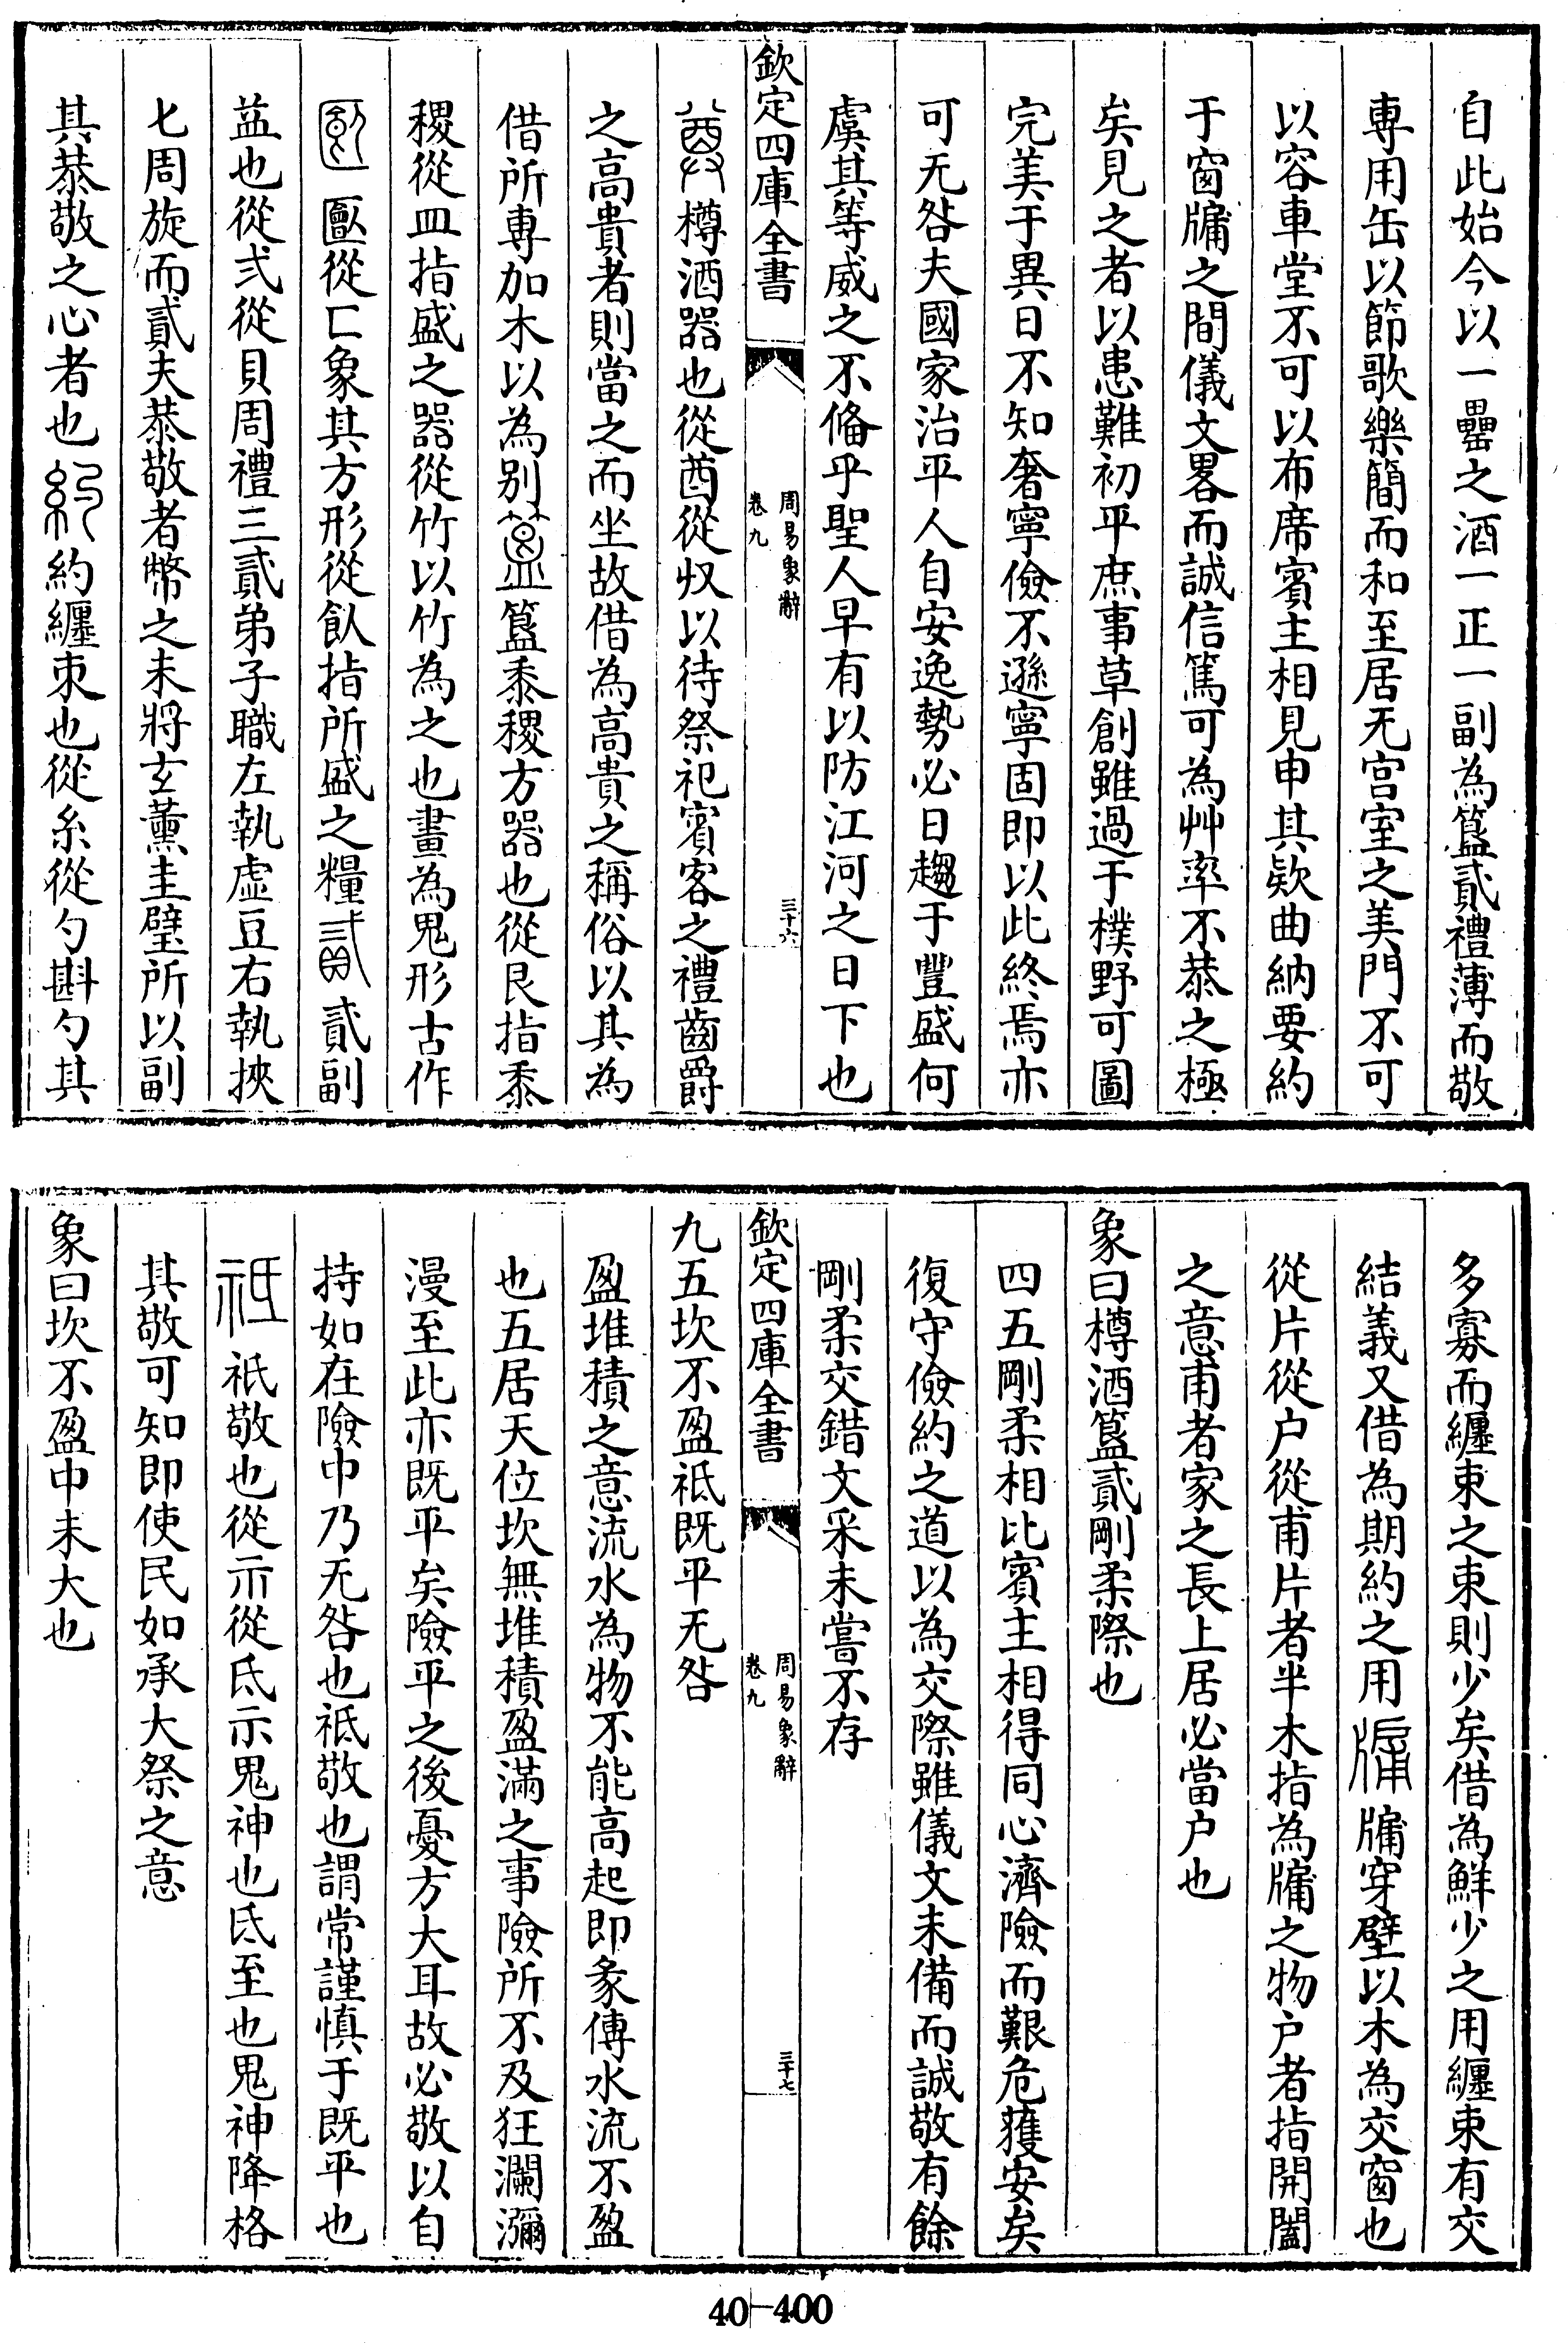 自此始今以一罍之酒一正一副為簋貳禮薄而敬
專用缶以節歌樂簡而和至居无宫室之美門不可
以容車堂不可以布席賓主相見申其欵曲納要約
于窗牖之間儀文畧而誠信篤可為艸率不恭之極
矣見之者以患難初平庶事草創雖過于樸野可圖
完美于異日不知奢寧儉不遜寧固即以此終焉亦
可无咎夫國家治平人自安逸勢必日趨于豐盛何
虞其等威之不俻乎聖人早有以防江河之日下也
欽定四庫全書
周易象辭
卷九
三十六
樽酒器也從酋從収以待祭祀賓客之禮齒爵
之高貴者則當之而坐故借為高貴之稱俗以其為
借所專加木以為别簋黍稷方器也從艮指黍
稷從皿指盛之器從竹以竹為之也畫為鬼形古作
匭從匚象其方形從飤指所盛之糧貳副
益也從弍從貝周禮三貳弟子職左執虛豆右執挾
匕周旋而貳夫恭敬者幣之未將玄薰圭璧所以副
其恭敬之心者也約纏束也從糸從勺斟勺其
多寡而纏束之束則少矣借為鮮少之用纏束有交
結義又借為期約之用牖穿壁以木為交窗也
從片從户從甫片者半木指為牖之物户者指開闔
之意甫者家之長上居必當户也
象曰樽酒簋貳剛柔際也
四五剛柔相比賓主相得同心濟險而艱危獲安矣
復守儉約之道以為交際雖儀文未備而誠敬有餘
剛柔交錯文采未嘗不存
欽定四庫全書
周易象辭
卷九
三十七
九五坎不盈祗既平无咎
盈堆積之意流水為物不能高起即彖傳水流不盈
也五居天位坎無堆積盈滿之事險所不及狂瀾瀰
漫至此亦既平矣險平之後憂方大耳故必敬以自
持如在險中乃无咎也祗敬也謂常謹慎于既平也
祇敬也從示從氐示鬼神也氐至也鬼神降格
其敬可知即使民如承大祭之意
象曰坎不盈中未大也
40-400